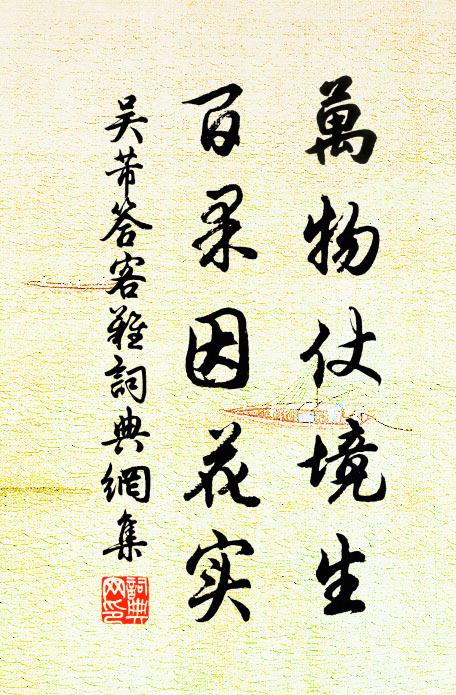 萬物仗境生
百果因花实
吴芾答客難詞典網集
詞典网印